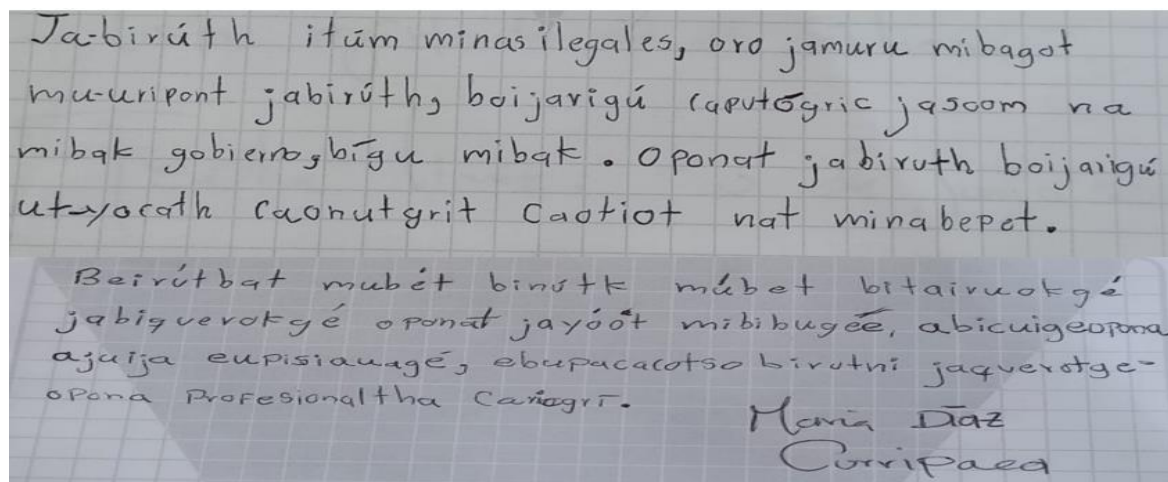 Ja-birúth itúm minas ilegales, oro jamuru mibagot
mu-uripont jabirúth, boijarigú caputōgric jascom na
mibak gobierno, bīgu mibak. Oponat jabiruth boijarigú
ut-yocath caonutgrit caotiot nat minabepet.
Beirútbat mubét binútk múbet bitairuokgé
jabiquerokgé oponat jayóót mibibugēē, abicuigeopona
ajuīja eupisiauagé, ebupacacotso birutni jaquerotge-
opona Profesionaltha Cariogrī.
María Dīaz
Corripaea